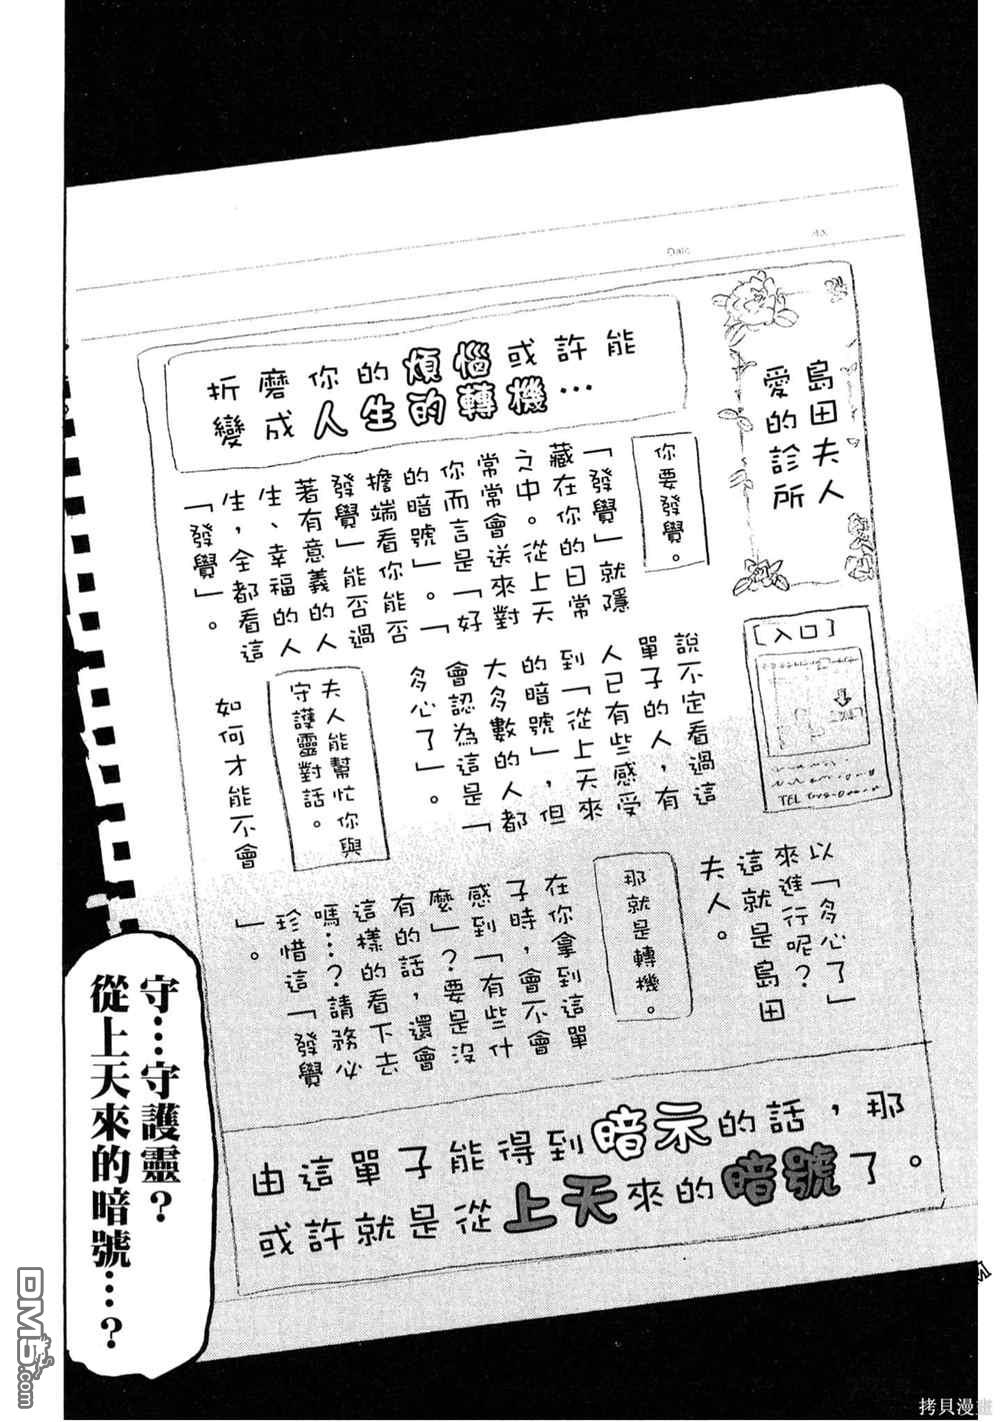 Date
島田夫人
愛的診所
折磨你的煩惱或許能
變成人生的轉機…
你要發覺。
「發覺」就隱
藏在你的日常
之中。從上天
常常會送來對
你而言是「好
的暗號」。「
擔端看你能否
發覺」能否過
著有意義的人
生、幸福的人
生，全都看這
「發覺」。
〔入口〕
TEL
說不定看過這
單子的人，有
人已有些感受
到「從上天來
的暗號」，但
大多數的人都
會認為這是「
多心了」。
夫人能幫忙你與
守護靈對話。
如何才能不會
以「多心了」
來進行呢？
這就是島田
夫人。
那就是轉機。
在你拿到這單
子時，會不會
感到「有些什
麼」？要是沒
有的話，還會
這樣的看下去
嗎…？請務必
珍惜這「發覺
」。
由這單子能得到暗示的話，那
或許就是從上天來的暗號了。
守…守護靈？
從上天來的暗號…？
DM5.com
拷貝漫畫